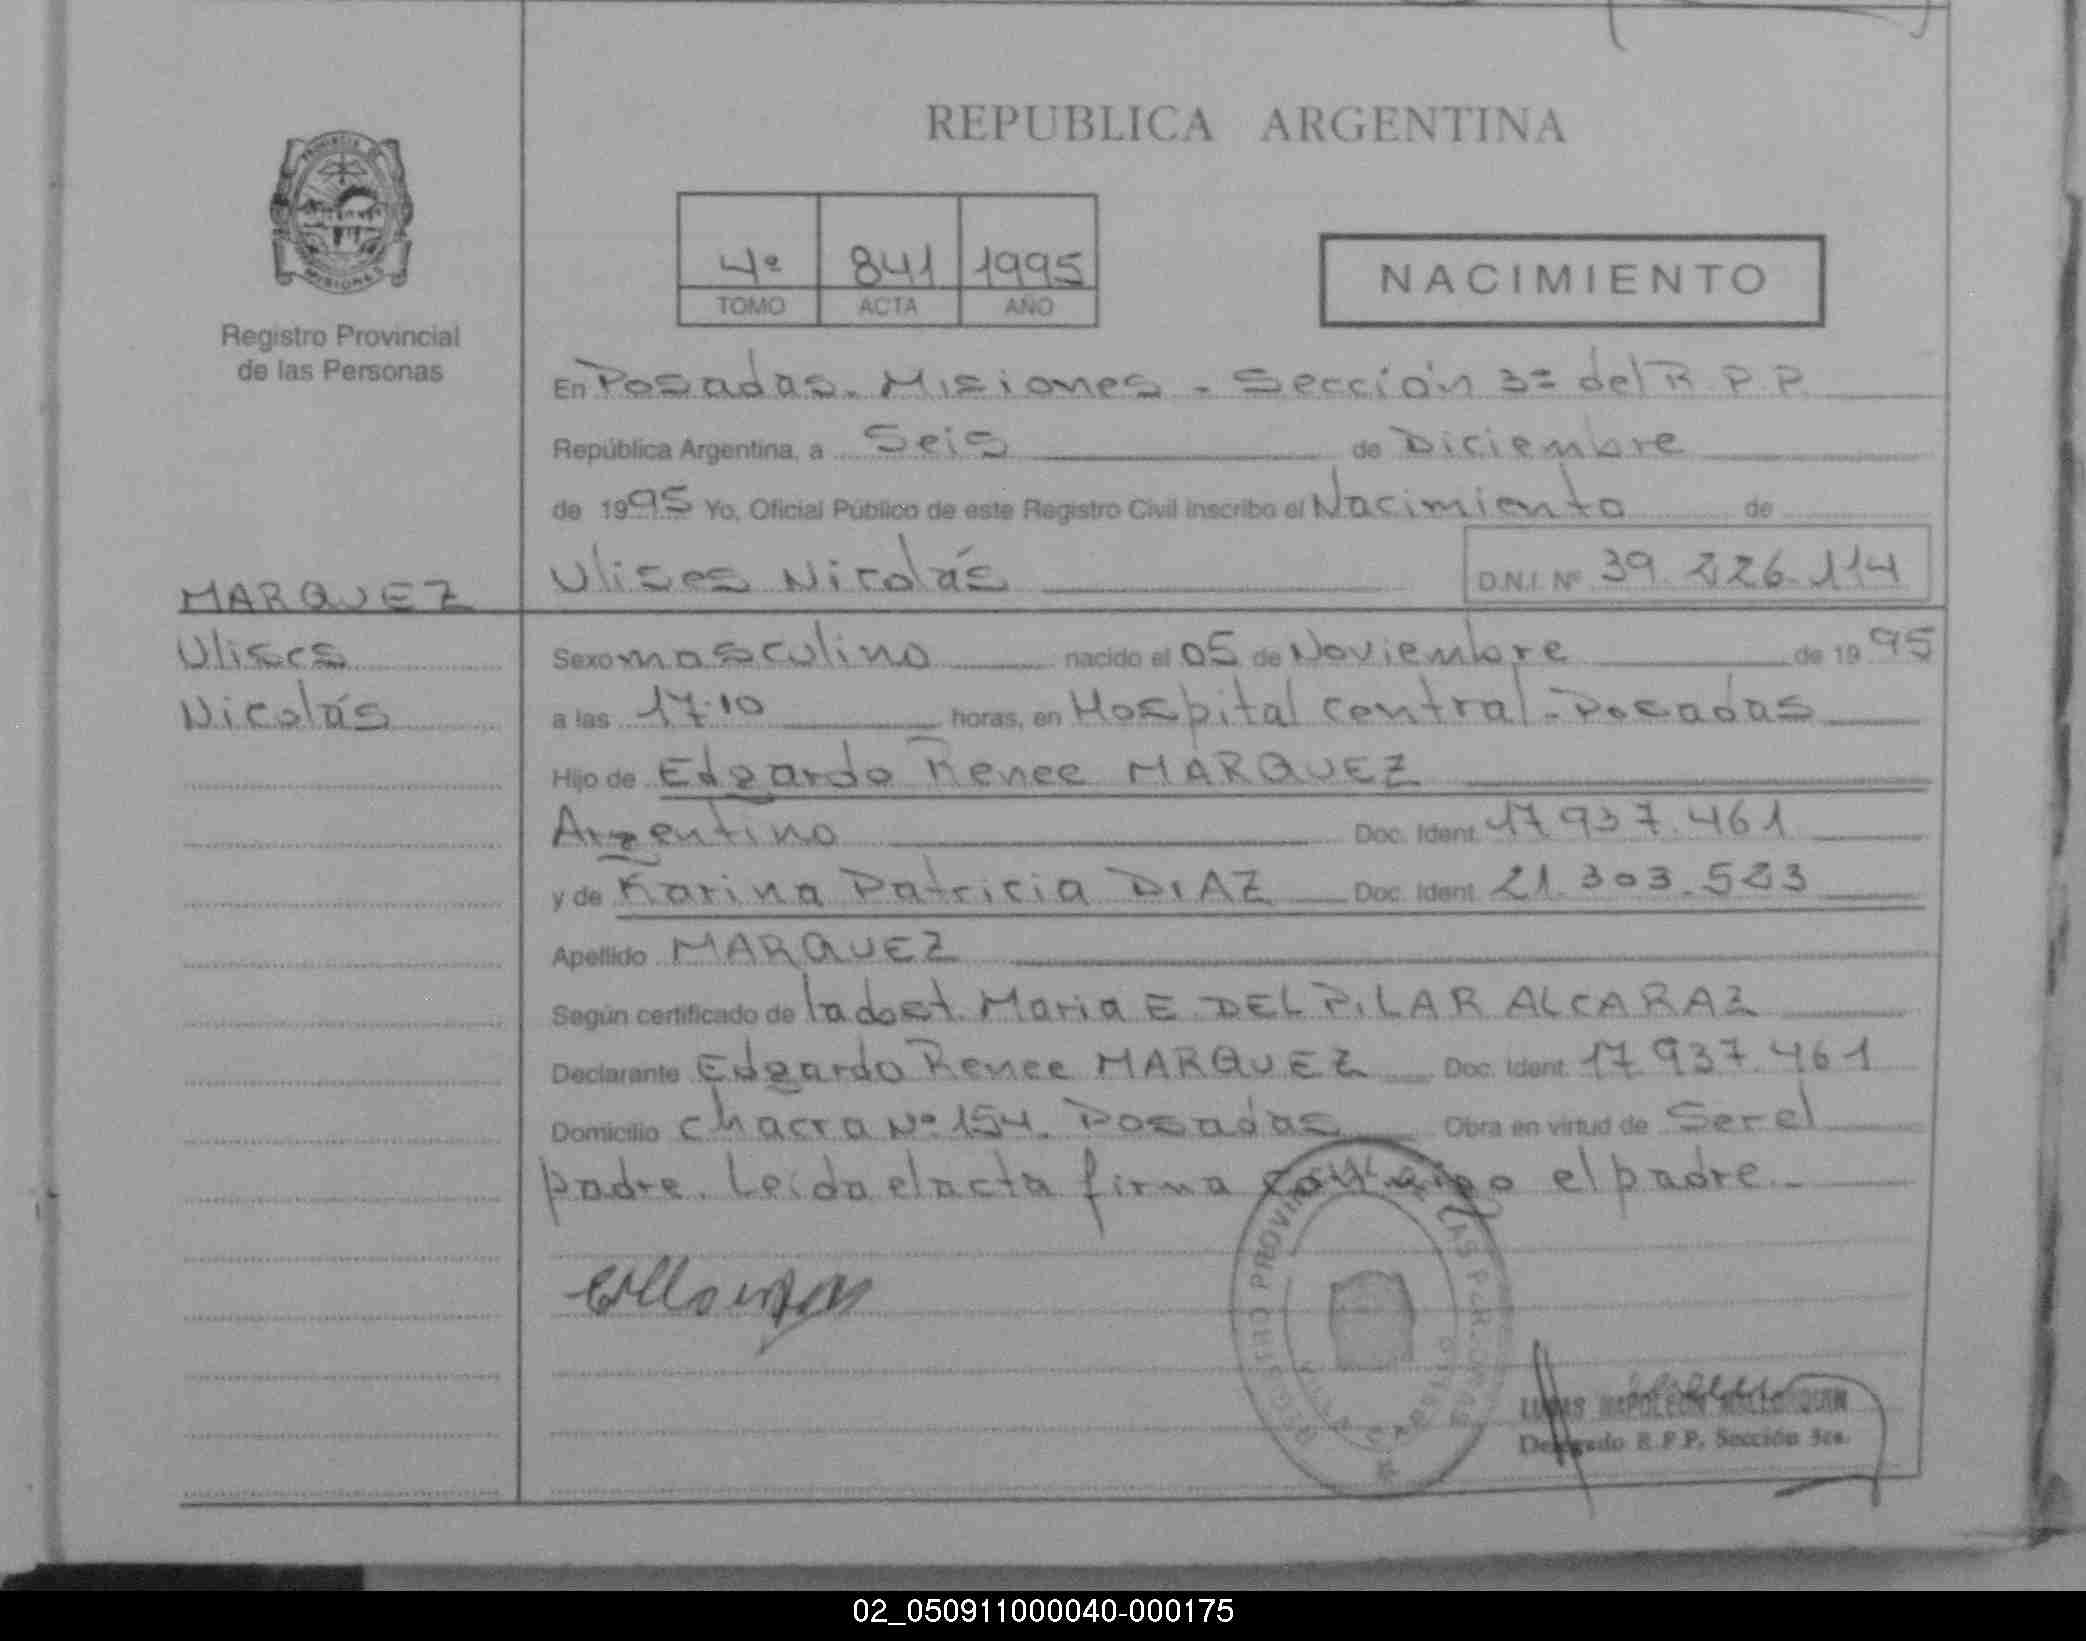 REPUBLICA ARGENTINA
PROVINCIA DE
MISIONES
Registro Provincial
de las Personas
4º 841 1995
TOMO ACTA AÑO
NACIMIENTO
En Posadas. Misiones - Sección 3ª del R.P.P.
República Argentina, a Seis de Diciembre
de 1995 Yo, Oficial Público de este Registro Civil inscribo el Nacimiento de
Ulises Nicolás D.N.I. Nº 39.226.114
MARQUEZ
Ulises
Nicolás
Sexo masculino nacido el 05 de Noviembre de 1995
a las 17.10 horas, en Hospital Central - Posadas
Hijo de Edgardo Renee MARQUEZ
Argentino Doc. Ident. 17.937.461
y de Karina Patricia DIAZ Doc. Ident. 21.303.523
Apellido MARQUEZ
Según certificado de la dost. Maria E. DEL PILAR ALCARAZ
Declarante Edgardo Renee MARQUEZ Doc. Ident. 17.937.461
Domicilio chacra Nº 154. Posadas Obra en virtud de Ser el
padre. Leída el acta firma conmigo el padre.-
REGISTRO PROVINCIAL LAS PERSONAS
LUCAS NAPOLEON MALLORQUIN
Delegado R.P.P. Sección 3ra.
02_050911000040-000175